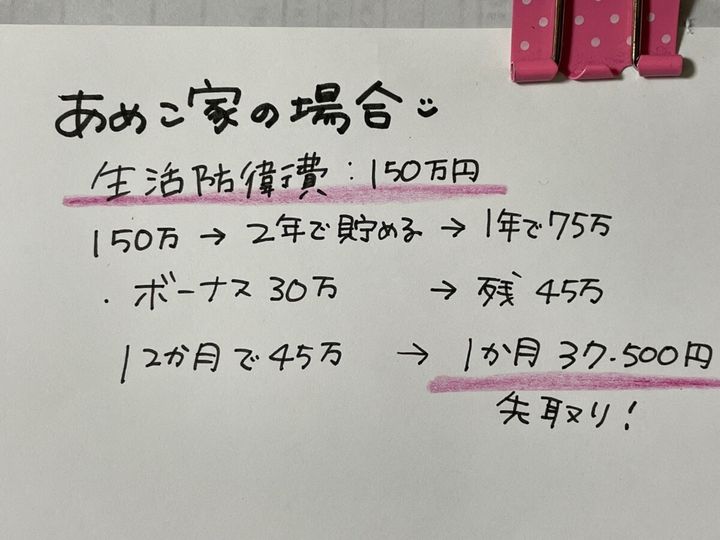 あめこ家の場合
生活防衛費：150万円
150万 → 2年で貯める → 1年で75万
・ボーナス 30万 → 残 45万
12か月で45万 → 1か月 37.500円
先取り！